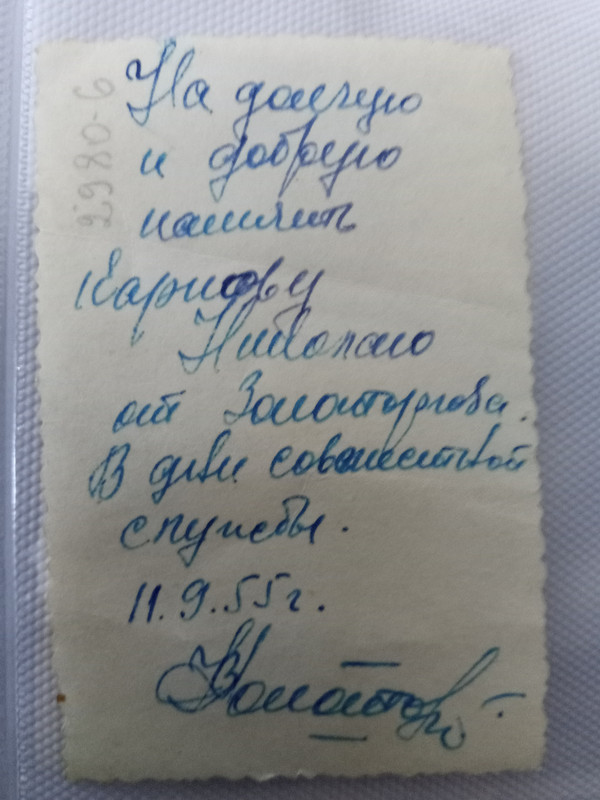 На долгую
и добрую
память
Карпову
Николаю
от Золоторгова.
В дни совместной
службы.
11.9.55г.
2980-6